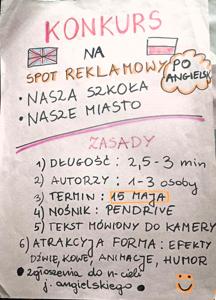 KONKURS
NA
SPOT REKLAMOWY PO ANGIELSKU
• NASZA SZKOŁA
• NASZE MIASTO
ZASADY
1) DŁUGOŚĆ : 2,5-3 min
2) AUTORZY : 1-3 osoby
3) TERMIN : 15 MAJA
4) NOŚNIK : PENDRIVE
5) TEKST MÓWIONY DO KAMERY
6) ATRAKCYJNA FORMA : EFEKTY
DŹWIĘKOWE, ANIMACJE, HUMOR
• zgłoszenia do n-cieli
j. angielskiego •